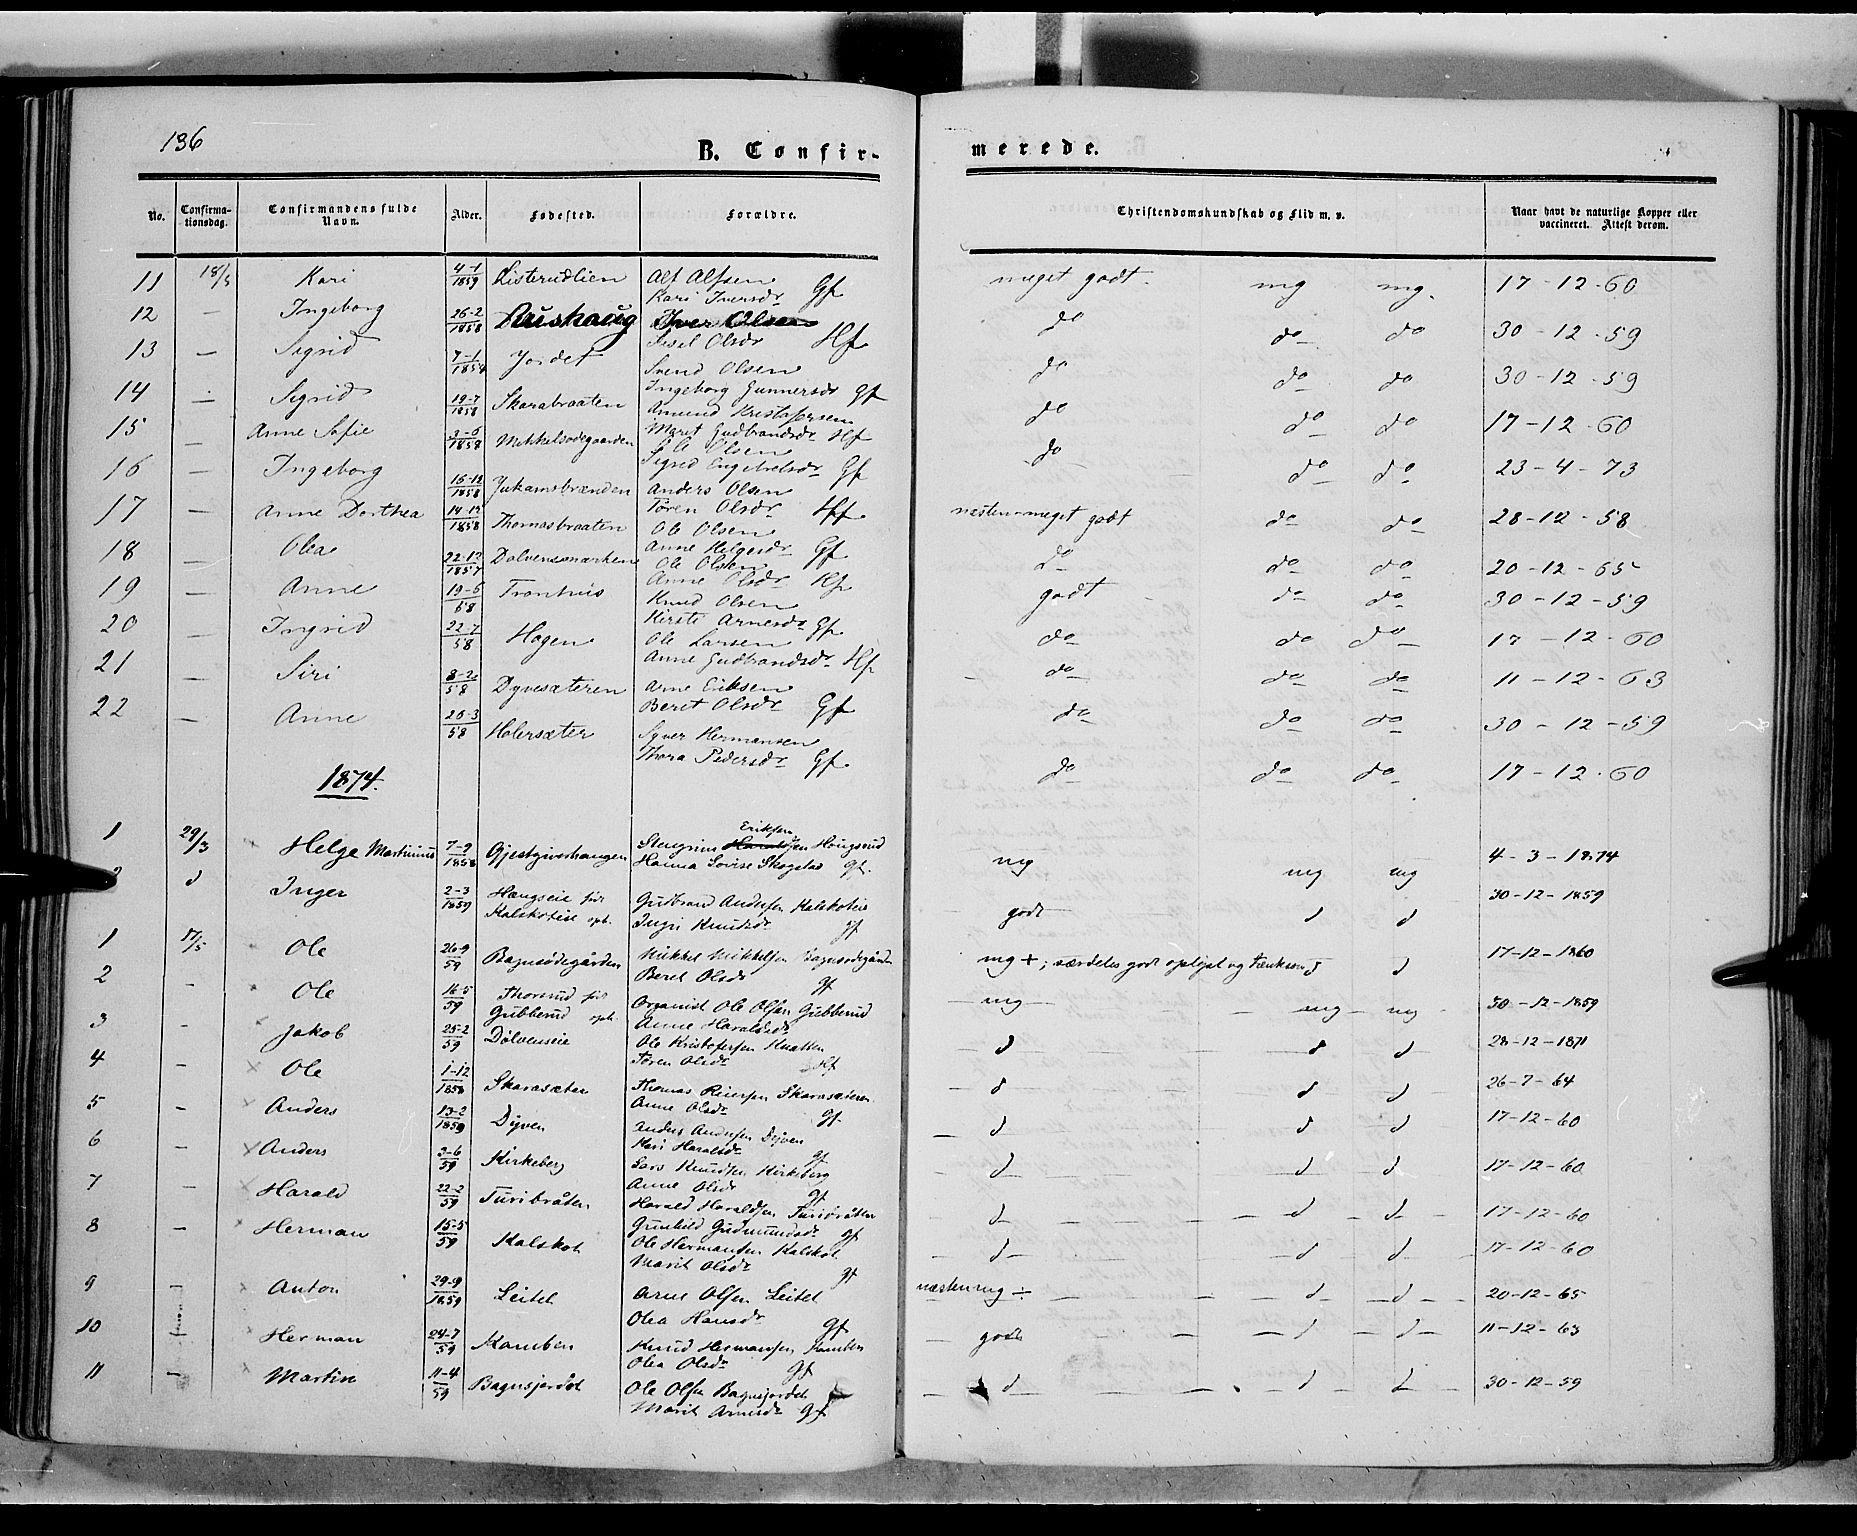 136
B. Confir-
merede.
No.
Confirma-
tionsdag.
Confirmandens fulde
Navn.
Alder.
Fødested.
Forældre.
Christendomskundskab og Flid m. v.
Naar havt de naturlige Kopper eller
vaccineret. Attest derom.
11 18/5 Kari 4-1/1859 Listerudlien Alf Alfsen meget godt. mg mg. 17-12-60
Kari Iversdr Gf
12 — Ingeborg 26-2/1858 Aushaug Iver Olsen do do do 30-12-59
Sisel Olsdr Hf
13 — Sigrid 7-1/1854 Jordet Svend Olsen do do do 30-12-59
Ingeborg Gunnersdr Gf
14 — Sigrid 19-7/1858 Skarabraaten Amund Kristofersen do do do 17-12-60
Marit Gudbrandsdr Hf
15 — Anne Sofie 3-6/1858 Mikkelsødegaarden Ole Olsen do do do 23-4-73
Sigrid Engebretsdr Gf
16 — Ingeborg 16-12/1858 Jukamsbrænden Anders Olsen næsten-meget godt do do 28-12-58
Tören Olsdr Hf
17 — Anne Dorthea 14-12/1858 Thomasbraaten Ole Olsen do do do 20-12-65
Anne Helgesdr Gf
18 — Olea 22-12/1857 Dölvensmarken Ole Olsen godt do do 30-12-59
Anne Olsdr Hf
19 — Anne 19-6/58 Tronhus Knud Olsen do do do 17-12-60
Kirsti Arnesdr Gf
20 — Ingrid 22-7/58 Hagen Ole Larsen do do do 11-12-63
Anne Gudbrandsdr Hf
21 — Siri 8-2/58 Dyvesæteren Arne Eriksen do do do 30-12-59
Beret Olsdr Gf
22 — Anne 26-3/58 Holersæter Syver Hermansen do do do 17-12-60
Thora Pedersdr Gf
1874.
1 29/3 Helge Martinius 7-9/1858 Gjestgiverhaugen Stengrim Haraldsen Eriksen Hougsrud mg mg mg 4-3-1874
Hanna Lovise Skogstad gf.
2 d Inger 2-3/1859 Haugseie før Gudbrand Andersen Kalskoteie godt d d 30-12-1859
Kalskoteie oph. Ingri Knudsdr gf
1 17/5 Ole 26-9/59 Bagnsødegården Mikkel Mikkelsen Bagnsødegården mg +; særdeles godt oplyst og tænksom d 17-12-1860
Beret Olsdr gf
2 - Ole 16-5/59 Thorsrud før Organist Ole Olsen Gubberud mg mg mg 30-12-1859
Gubberud oph. Anne Haraldsdr
3 - Jakob 25-2/59 Dölvenseie Ole Kristofersen Knatten d d d 28-12-1871
Tören Olsdr Hf
4 - Ole 1-12/1858 Skarasæter Thomas Reiersen Skarasæteren d d d 26-7-64
Anne Olsdr gf
5 - Anders 13-2/1859 Dyven Anders Andersen Dyven d d d 17-12-60
Kari Haralsdr gf
6 - Anders 3-6/59 Kirkeberg Lars Knudsen Kirkeberg d d d 17-12-60
Anne Olsdr gf
7 - Harald 22-2/59 Turibråten Harald Haraldsen Turibråten d d d 17-12-60
Gunhild Gudmundsdr gf
8 - Herman 15-5/59 Kalskot Ole Hermansen Kalskot d d d 17-12-60
Marit Olsdr gf
9 - Anton 29-9/1859 Leitet Arne Olsen Leitet næsten mg ÷ d d 20-12-65
Olea Hansdr gf
10 - Herman 24-7/59 Kamben Knud Hermansen Kamben godt d d 11-12-63
Olea Olsdr gf
11 - Martin 11-4/59 Bagnsjordet Ole Olsen Bagnsjordet d d d 30-12-59
Marit Arnesdr gf